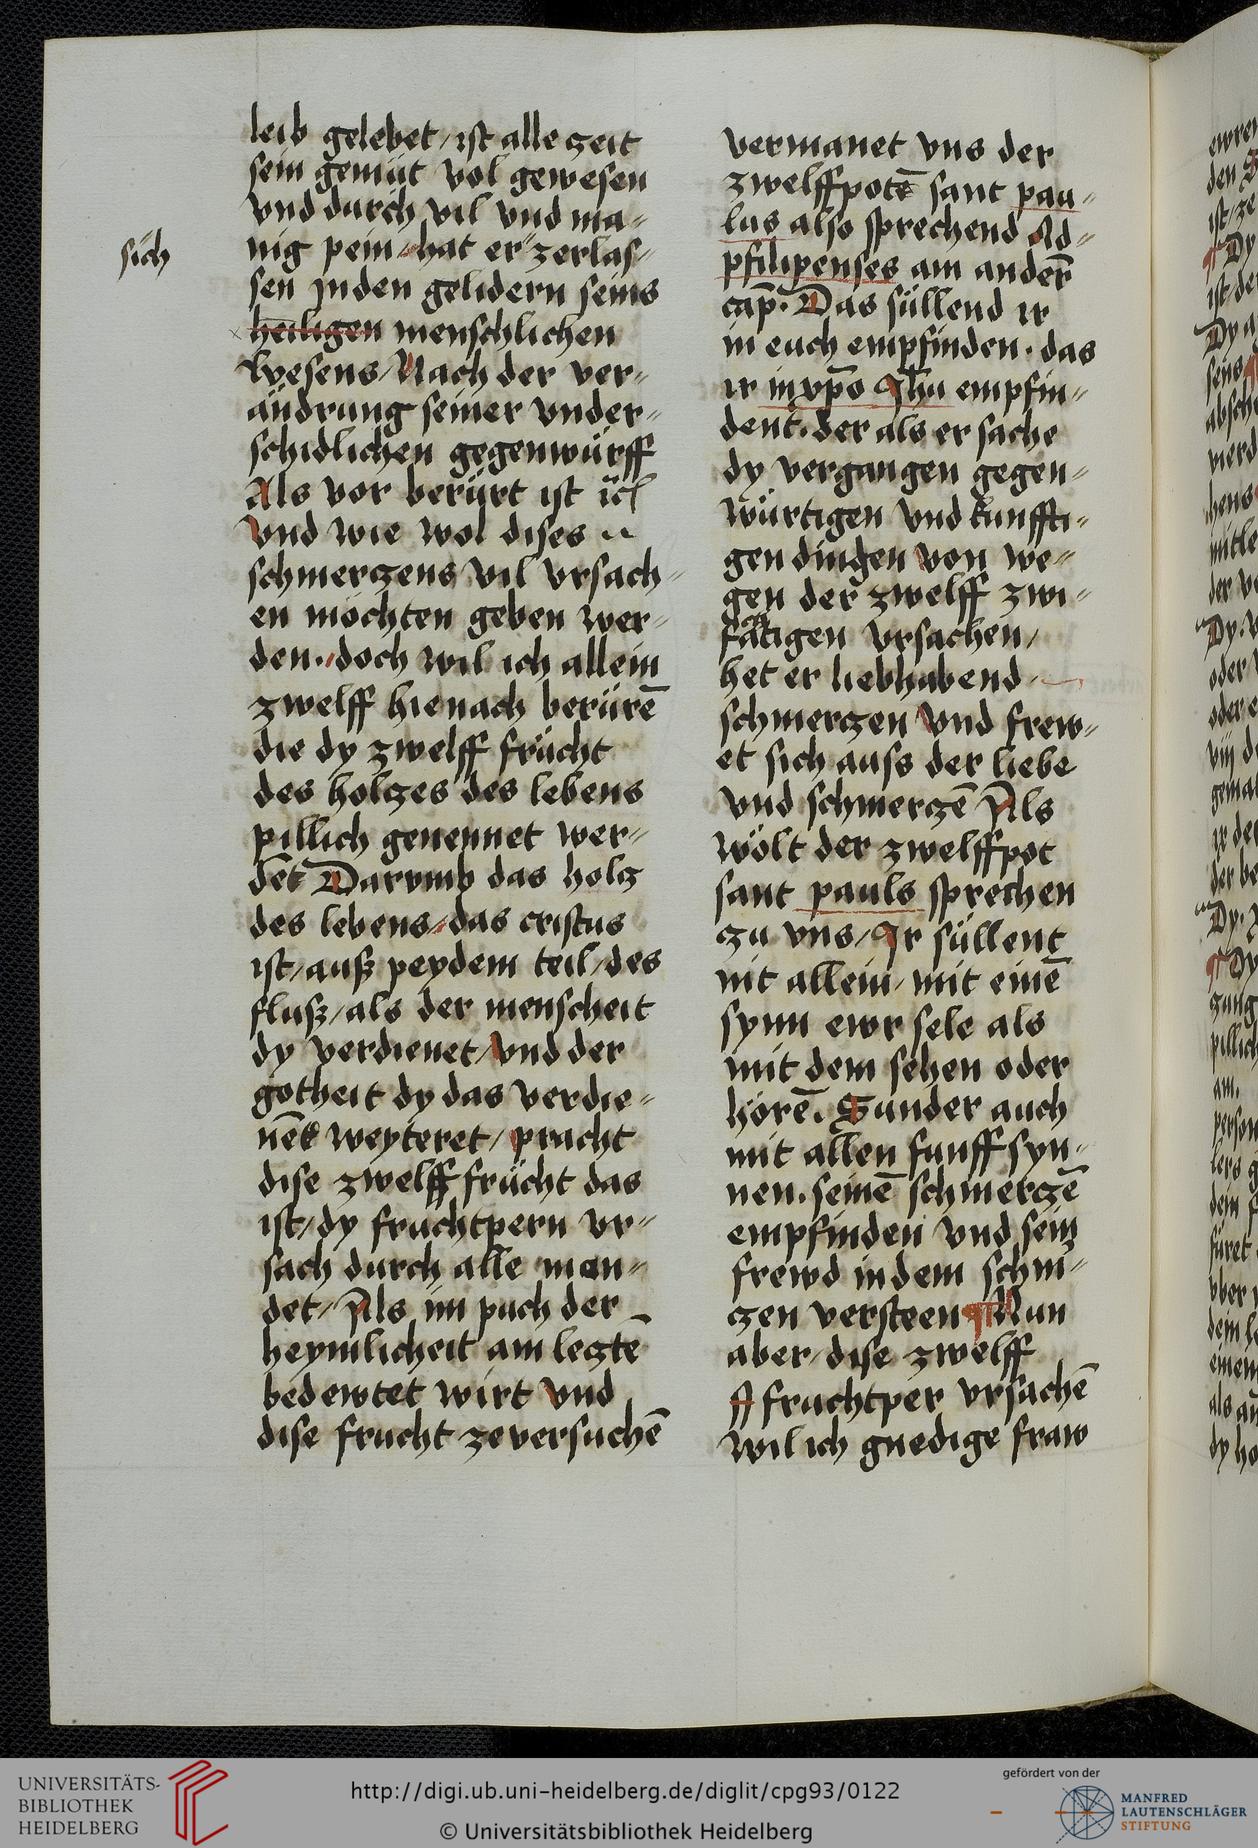 leib gelebet / ist alle zeit
sein gemüt vol gewesen
vnd durch vil vnd ma„
nig pein / hat er zerlas„
sich
sen jnden gelidern seins
heiligen menschlichen
wesens / Nach der ver„
ändrung seiner vnder„
schidlichen gegenwürff
Als vor berürt ist
vnd wie wol dises
schmerczens vil vrsach„
en möchten geben wer„
den · / doch wil ich allein
zwelff hienach berürē
die dy zwelff frücht
des holczes des lebens
pillich genennet wer„
dēt Darvmb das holcz
des lebens / das cristus
ist / auß peydem teil / des
fluß / als der menscheit
dy verdienet / vnd der
gotheit dy das verdie„
nēt weyteret / pracht
dise zwelff frücht das
ist / dy fruchtpern vr„
sach durch alle mon„
det / Als im puch der
heymlicheit am lecztē
bedewtet wirt vnd
dise frucht zeversuchē
vermanet vns der
zwelffpotē sant pau„
lus also sprechend Ad„
pfilipenses am anderr̄
cap̄. Das süllend ir
in euch empfinden · das
ir in xp̄o Jh̄u empfin„
dent. der als er sache
dy vergangen gegen„
würtigen vnd kunffti„
gen dingen von we„
gen der zwelff zwi„
fatigen vrsachen /
het er liebhabend
schmerczen vnd frew„
et sich auss der liebe
vnd schmerczē Als
wölt der zwelffpot
sant pauls sprechen
zu vns / Ir süllent
nit allein / mit einē
synn ewr sele als
mit dem sehen oder
hörē. Sunder auch
mit allen funff syn„
nen. seinē schmerczē
empfinden vnd sein
frewd in dem schm„
czen versteen ¶ Nun
aber / dise zwelff
fruchtper vrsachē
wil ich gnedige fraw
UNIVERSITÄTS-
BIBLIOTHEK
HEIDELBERG
http://digi.ub.uni-heidelberg.de/diglit/cpg93/0122
© Universitätsbibliothek Heidelberg
gefördert von der
MANFRED
LAUTENSCHLÄGER
STIFTUNG